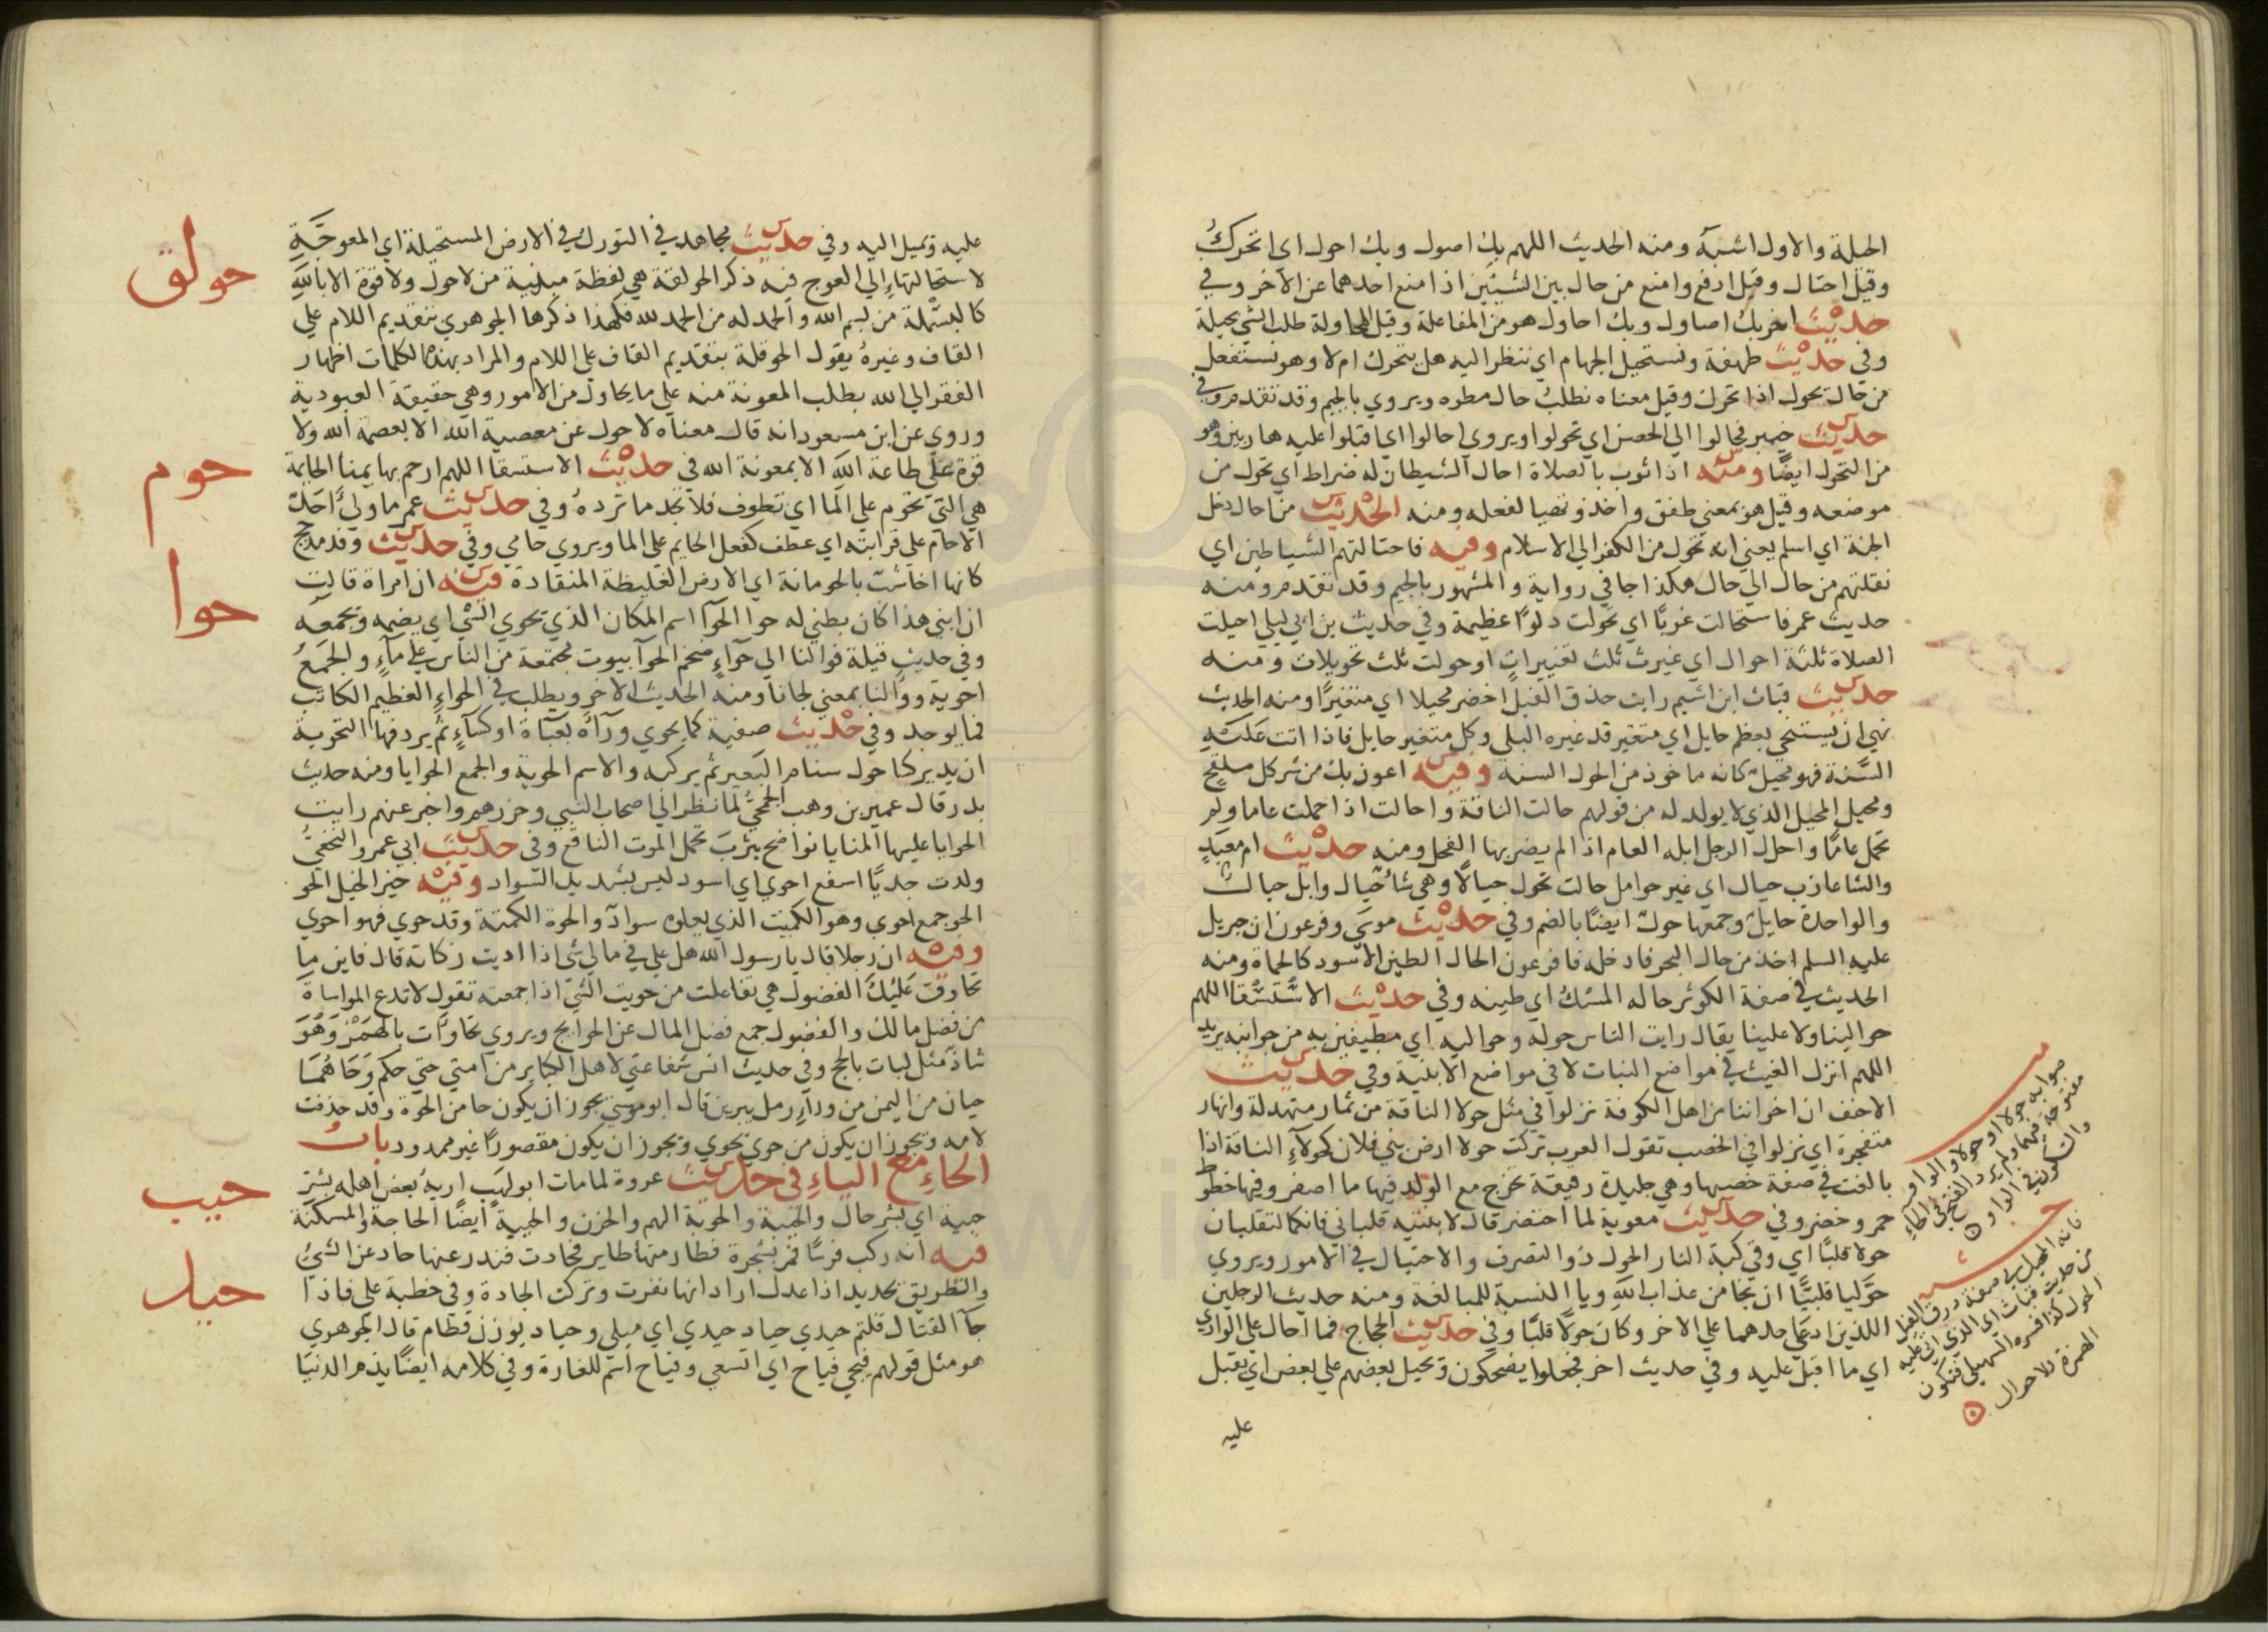 الحيلة والاول اشبه ومنه الحديث اللهم بك اصول وبك احول اي اتحرك
وقيل احتال وقيل ادفع وامنع من حال بين الشيئين اذا منع احدهما عن الآخر وفي
حديث اخر بك اصاول وبك احاول هو من المفاعلة وقيل المحاولة طلب الشي بحيلة
وفي حديث طهفة ونستحيل الجهام اي ننظر اليه هل يتحرك ام لا وهو نستفعل
من حال يحول اذا تحرك وقيل معناه نطلب حال مطره ويروي بالجيم وقد تقدم وفي
حديث خيبر فحالوا الي الحصن اي تحولوا ويروي احالوا اي اقبلوا عليه هاربين وهو
من التحول ايضًا ومنه اذا ثوب بالصلاة احال الشيطان له ضراط اي تحول من
موضعه وقيل هو بمعني طفق واخذ وتهيا لفعله ومنه الحديث من احال دخل
الجنة اي اسلم يعني انه تحول من الكفر الي الاسلام وفيه فاحتالتهم الشياطين اي
نقلتهم من حال الي حال هكذا جا في رواية والمشهور بالجيم وقد تقدم ومنه
حديث عمر فاستحالت غربًا اي تحولت دلوًا عظيمة وفي حديث بن ابي ليلي احيلت
الصلاة ثلثة احوال اي غيرت ثلث تغييرات او حولت ثلث تحويلات ومنه
حديث قباث ابن اشيم رايت حذق الفيل اخضر محيلا اي متغيرًا ومنه الحديث
نهي ان يستنجي بعظم حايل اي متغير قد غيره البلي وكل متغير حايل فاذا اتت عليه
السنة فهو محيل كانه ماخوذ من الحول السنه وفيه اعوذ بك من شر كل ملقح
ومحيل المحيل الذي لا يولد له من قولهم حالت الناقة واحالت اذا حملت عاما ولم
تحمل عامًا واحال الرجل ابله العام اذا لم يضربها الفحل ومنه حديث ام معبد
والشا عازب حيال اي غير حوامل حالت تحول حيالًا وهي شاءٌ حيال وابل حيال
والواحدة حايل وجمعها حول ايضًا بالضم وفي حديث موسي وفرعون ان جبريل
عليه السلم اخذ من حال البحر فادخله فا فرعون الحال الطين الاسود كالحماة ومنه
الحديث في صفة الكوثر حاله المسك اي طينه وفي حديث الاستسقا اللهم
حوالينا ولا علينا يقال رايت الناس حوله وحواليه اي مطيفين به من جوانبه يريد
اللهم انزل الغيث في مواضع النبات لا في مواضع الابنية وفي حديث
الاحنف ان اخواننا من اهل الكوفة نزلوا في مثل حولا الناقة من ثمار متهدلة وانهار
متفجرة اي نزلوا في الخصب تقول العرب تركت حولا ارض بني فلان كحولاء الناقة اذا
بالغت في صفة خصبها وهي جليدة رقيقة تخرج مع الولد فيها ما اصفر وفيها خطوط
حمر وخضر وفي حديث معوية لما احتضر قال لابنتيه قلباني فانكما لتقلبان
حولا قلبًا اي وقي كبة النار الحول ذو التصرف والاحتيال في الامور ويروي
حوليا قلبيًا ان نجا من عذاب الله ويا النسبة للمبالغة ومنه حديث الرجلين
اللذين ادعي احدهما علي الاخر وكان حولًا قلبًا وفي حديث الحجاج فما احال علي الوادي
اي ما اقبل عليه وفي حديث اخر فجعلوا يضحكون ويحيل بعضهم علي بعض اي يقبل
عليه
صوابه حولا او حولاو الواو
مفتوحة فيهما ولم يرد الفتح في الحاء
والسكون في الواو
فانه المحيل في صفة ذرق الفيل
من حديث قباث اي الذي اتي عليه
الحول كذا فسره السهيلي فتكون
الهمزة للاحوال
عليه وتميل اليه وفي حديث مجاهد في التورك في الارض المستحيلة اي المعوجة
حولق
لاستحالتها الي العوج فيه ذكر الحولقة هي لفظة مبنية من لا حول ولا قوة الا بالله
كالبسملة من بسم الله والحمدله من الحمد لله فهكذا ذكرها الجوهري بتقديم اللام علي
القاف وغيره يقول الحوقلة بتقديم القاف علي اللام والمراد بهذه الكلمات اظهار
الفقر الي الله بطلب المعونة منه علي ما يحاول من الامور وهي حقيقة العبودية
وروي عن ابن مسعود انه قال معناه لا حول عن معصية الله الا بعصمة الله ولا
حوم
قوة علي طاعة الله الا بمعونة الله في حديث الاستسقا اللهم ارحم بهايمنا الحايمة
هي التي تحوم علي الما اي تطوف فلا تجد ما ترده وفي حديث عمر ما ولي احد
الا حام علي قرابته اي عطف كفعل الحايم علي الما ويروي حامي وفي حديث وفد مذحج
حوا
كانها اخاشب بالحومانة اي الارض الغليظة المنقادة فيه ان امراة قالت
ان ابني هذا كان بطني له حوا الحوآ اسم المكان الذي يحوي الشي اي يضمه ويجمعه
وفي حديث قيلة فوالنا الي حوآء ضخم الحوآ بيوت مجتمعة من الناس علي ماء والجمع
احوية ووالنا بمعني لجانا ومنه الحديث الاخر ويطلب في الحواء العظيم الكاتب
فما يوجد وفي حديث صفية كما يحوي ورآه بعباة او كساء ثم يردفها التحوية
ان يدير كسا حول سنام البعير ثم يركبه والاسم الحوية والجمع الحوايا ومنه حديث
بدر قال عمير بن وهب الجمحي لما نظر الي اصحاب النبي وحزرهم واخبر عنهم رايت
الحوايا عليها المنايا نواضح يثرب تحمل الموت الناقع وفي حديث ابي عمرو النخعي
ولدت جديًا اسفع احوي اي اسود ليس بشديد السواد وفيه خير الخيل الحو
الحو جمع احوي وهو الكميت الذي يعلوه سواد والحوة الكمتة وقد حوي فهو احوي
وفيه ان رجلا قال يا رسول الله هل علي في مالي شي اذا اديت زكاته قال فاين ما
تحاوت عليك الفضول هي تفاعلت من حويت الشي اذا جمعته تقول لا تدع المواساة
من فضل مالك والفضول جمع فضل المال عن الحوايج ويروي تحاوات بالهمز وهو
شاذ مثل لبات بالحج وفي حديث انس شفاعتي لاهل الكباير من امتي حتي حكم وحا هما
حيان من اليمن من ورآء رمل يبرين قال ابو موسي يجوز ان يكون حا من الحوة وقد حذفت
لامه ويجوز ان يكون من حوي يحوي ويجوز ان يكون مقصورًا غير ممدود باب
حيب
الحاء مع الياء في حديث عروة لما مات ابو لهب اريه بعض اهله بشر
حيبة اي بشر حال والحيبة والحوبة الهم والحزن والحيبة ايضًا الحاجة والمسكنة
حيد
فيه انه ركب فرسًا فمر بشجرة فطار منها طاير فحادت فندر عنها حاد عن الشي
والطريق يحيد اذا عدل اراد انها نفرت وتركت الجادة وفي خطبة علي فاذا
جآ القتال قلتم حيدي حياد حيدي اي ميلي وحياد بوزن قطام قال الجوهري
هو مثل قولهم فيحي فياح اي اتسعي وفياح اسم للغارة وفي كلامه ايضًا يذم الدنيا